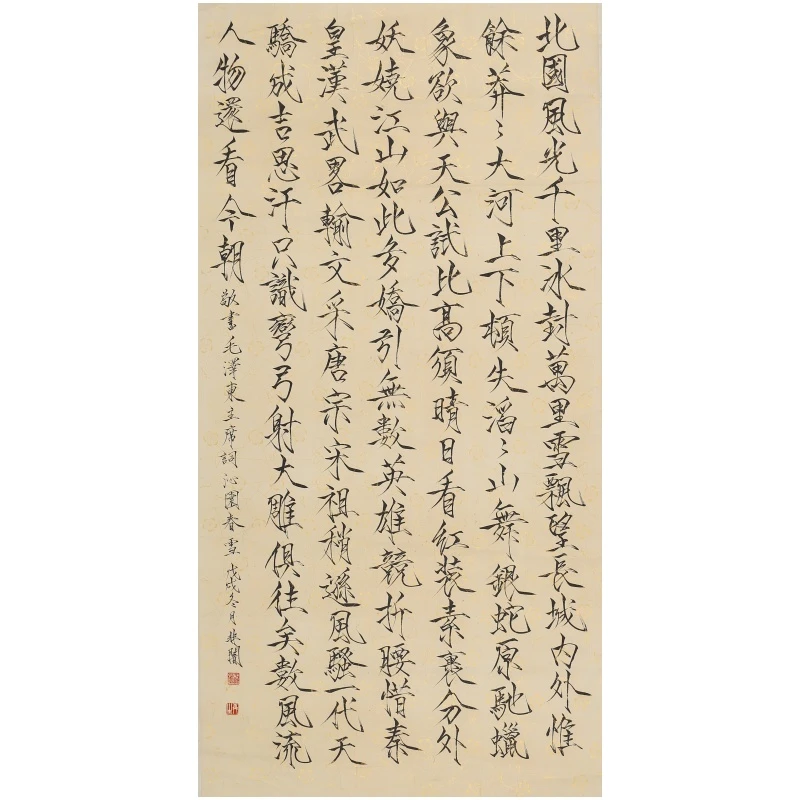 北國風光千里冰封萬里雪飄望長城內外惟
餘莽〻大河上下頓失滔〻山舞銀蛇原馳蠟
象欲與天公試比高須晴日看紅裝素裹分外
妖嬈江山如此多嬌引無數英雄競折腰惜秦
皇漢武畧輸文采唐宗宋祖稍遜風騷一代天
驕成吉思汗只識彎弓射大雕俱往矣數風流
人物還看今朝
敬書毛澤東主席詞沁園春雪戊戌冬月